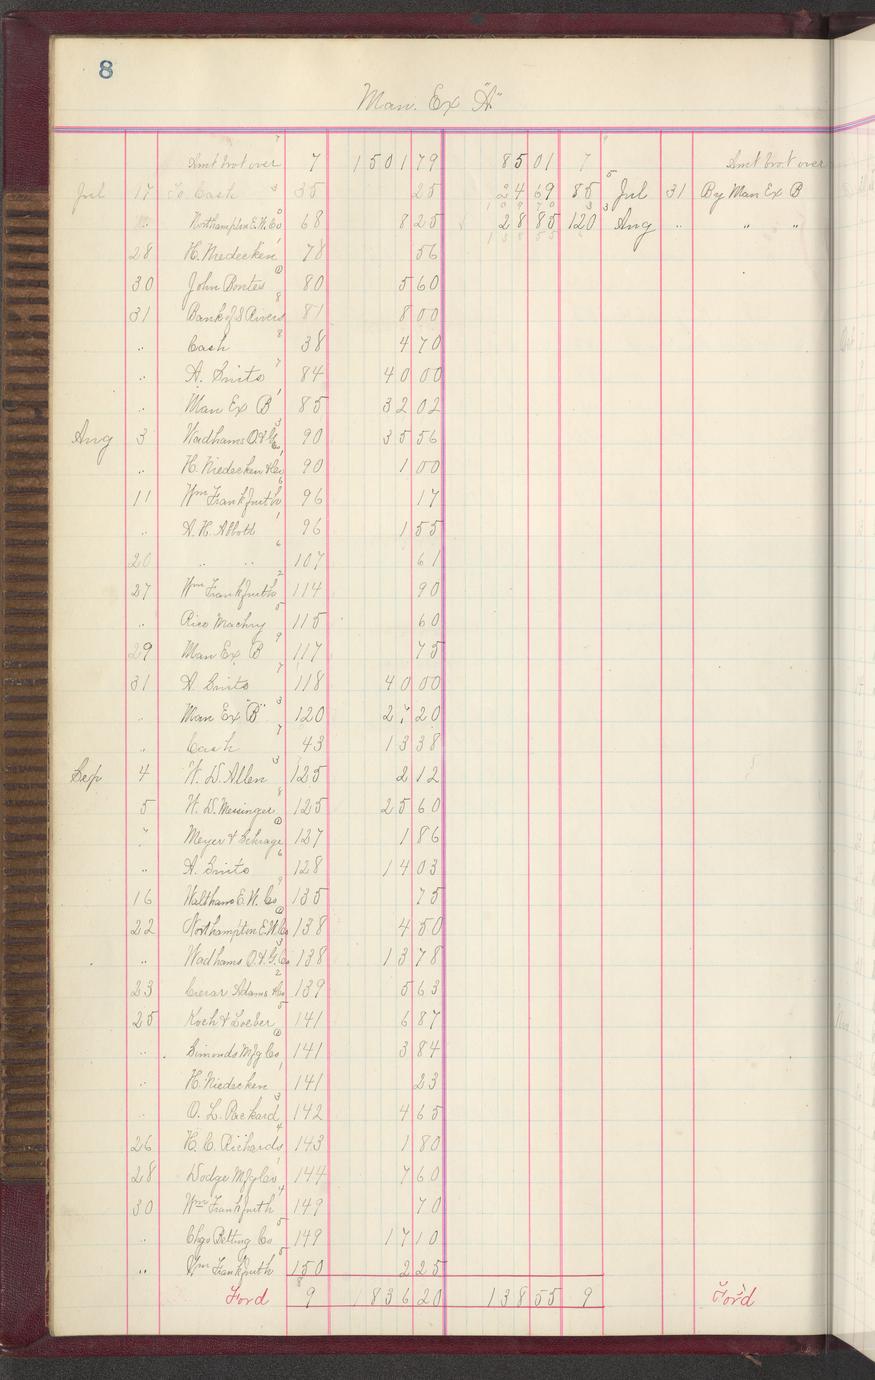 8
Man. Ex "A"
Amt brot over 7 1501 79 85 01 7 Amt brot over
Jul 17 To Cash 35 25 24 69 85 Jul 31 By Man Ex B
" Northampton E.W. Co 68 8 25 28 85 120 Aug " " "
28 H. Niedecken 78 56
30 John Pontes 80 5 60
31 Bank of S Rivers 81 8 00
" Cash 38 4 70
" A. Smits 84 40 00
" Man Ex B 85 32 02
Aug 3 Wadhams O. & G. Co 90 35 56
" H. Niedecken & Co 90 1 00
11 Wm Frankfurth 96 17
" A. H. Abbott 96 1 55
20 " " 107 61
27 Wm Frankfurth 114 90
" Rice Machry 115 60
29 Man Ex B 117 75
31 A. Smits 118 40 00
" Man Ex "B" 120 27 20
" Cash 43 13 38
Sep 4 W. D. Allen 125 2 12
5 H. D. Messinger 125 25 60
" Meyer & Schrage 127 1 86
" A. Smits 128 14 03
16 Waltham E. W. Co 135 75
22 Northampton E.W. Co 138 4 50
" Wadhams O. & G. Co 138 13 78
23 Crerar Adams & Co 139 5 63
25 Koch & Loeber 141 6 87
" Simonds Mfg Co 141 3 84
" H. Niedecken 141 23
" O. L. Packard 142 4 65
26 H. C. Richards 143 1 80
28 Dodge Mfg Co 144 7 60
30 Wm Frankfurth 149 70
" Chgo Belting Co 149 17 10
" Wm Frankfurth 150 2 25
Ford 9 1836 20 138 55 9 Ford